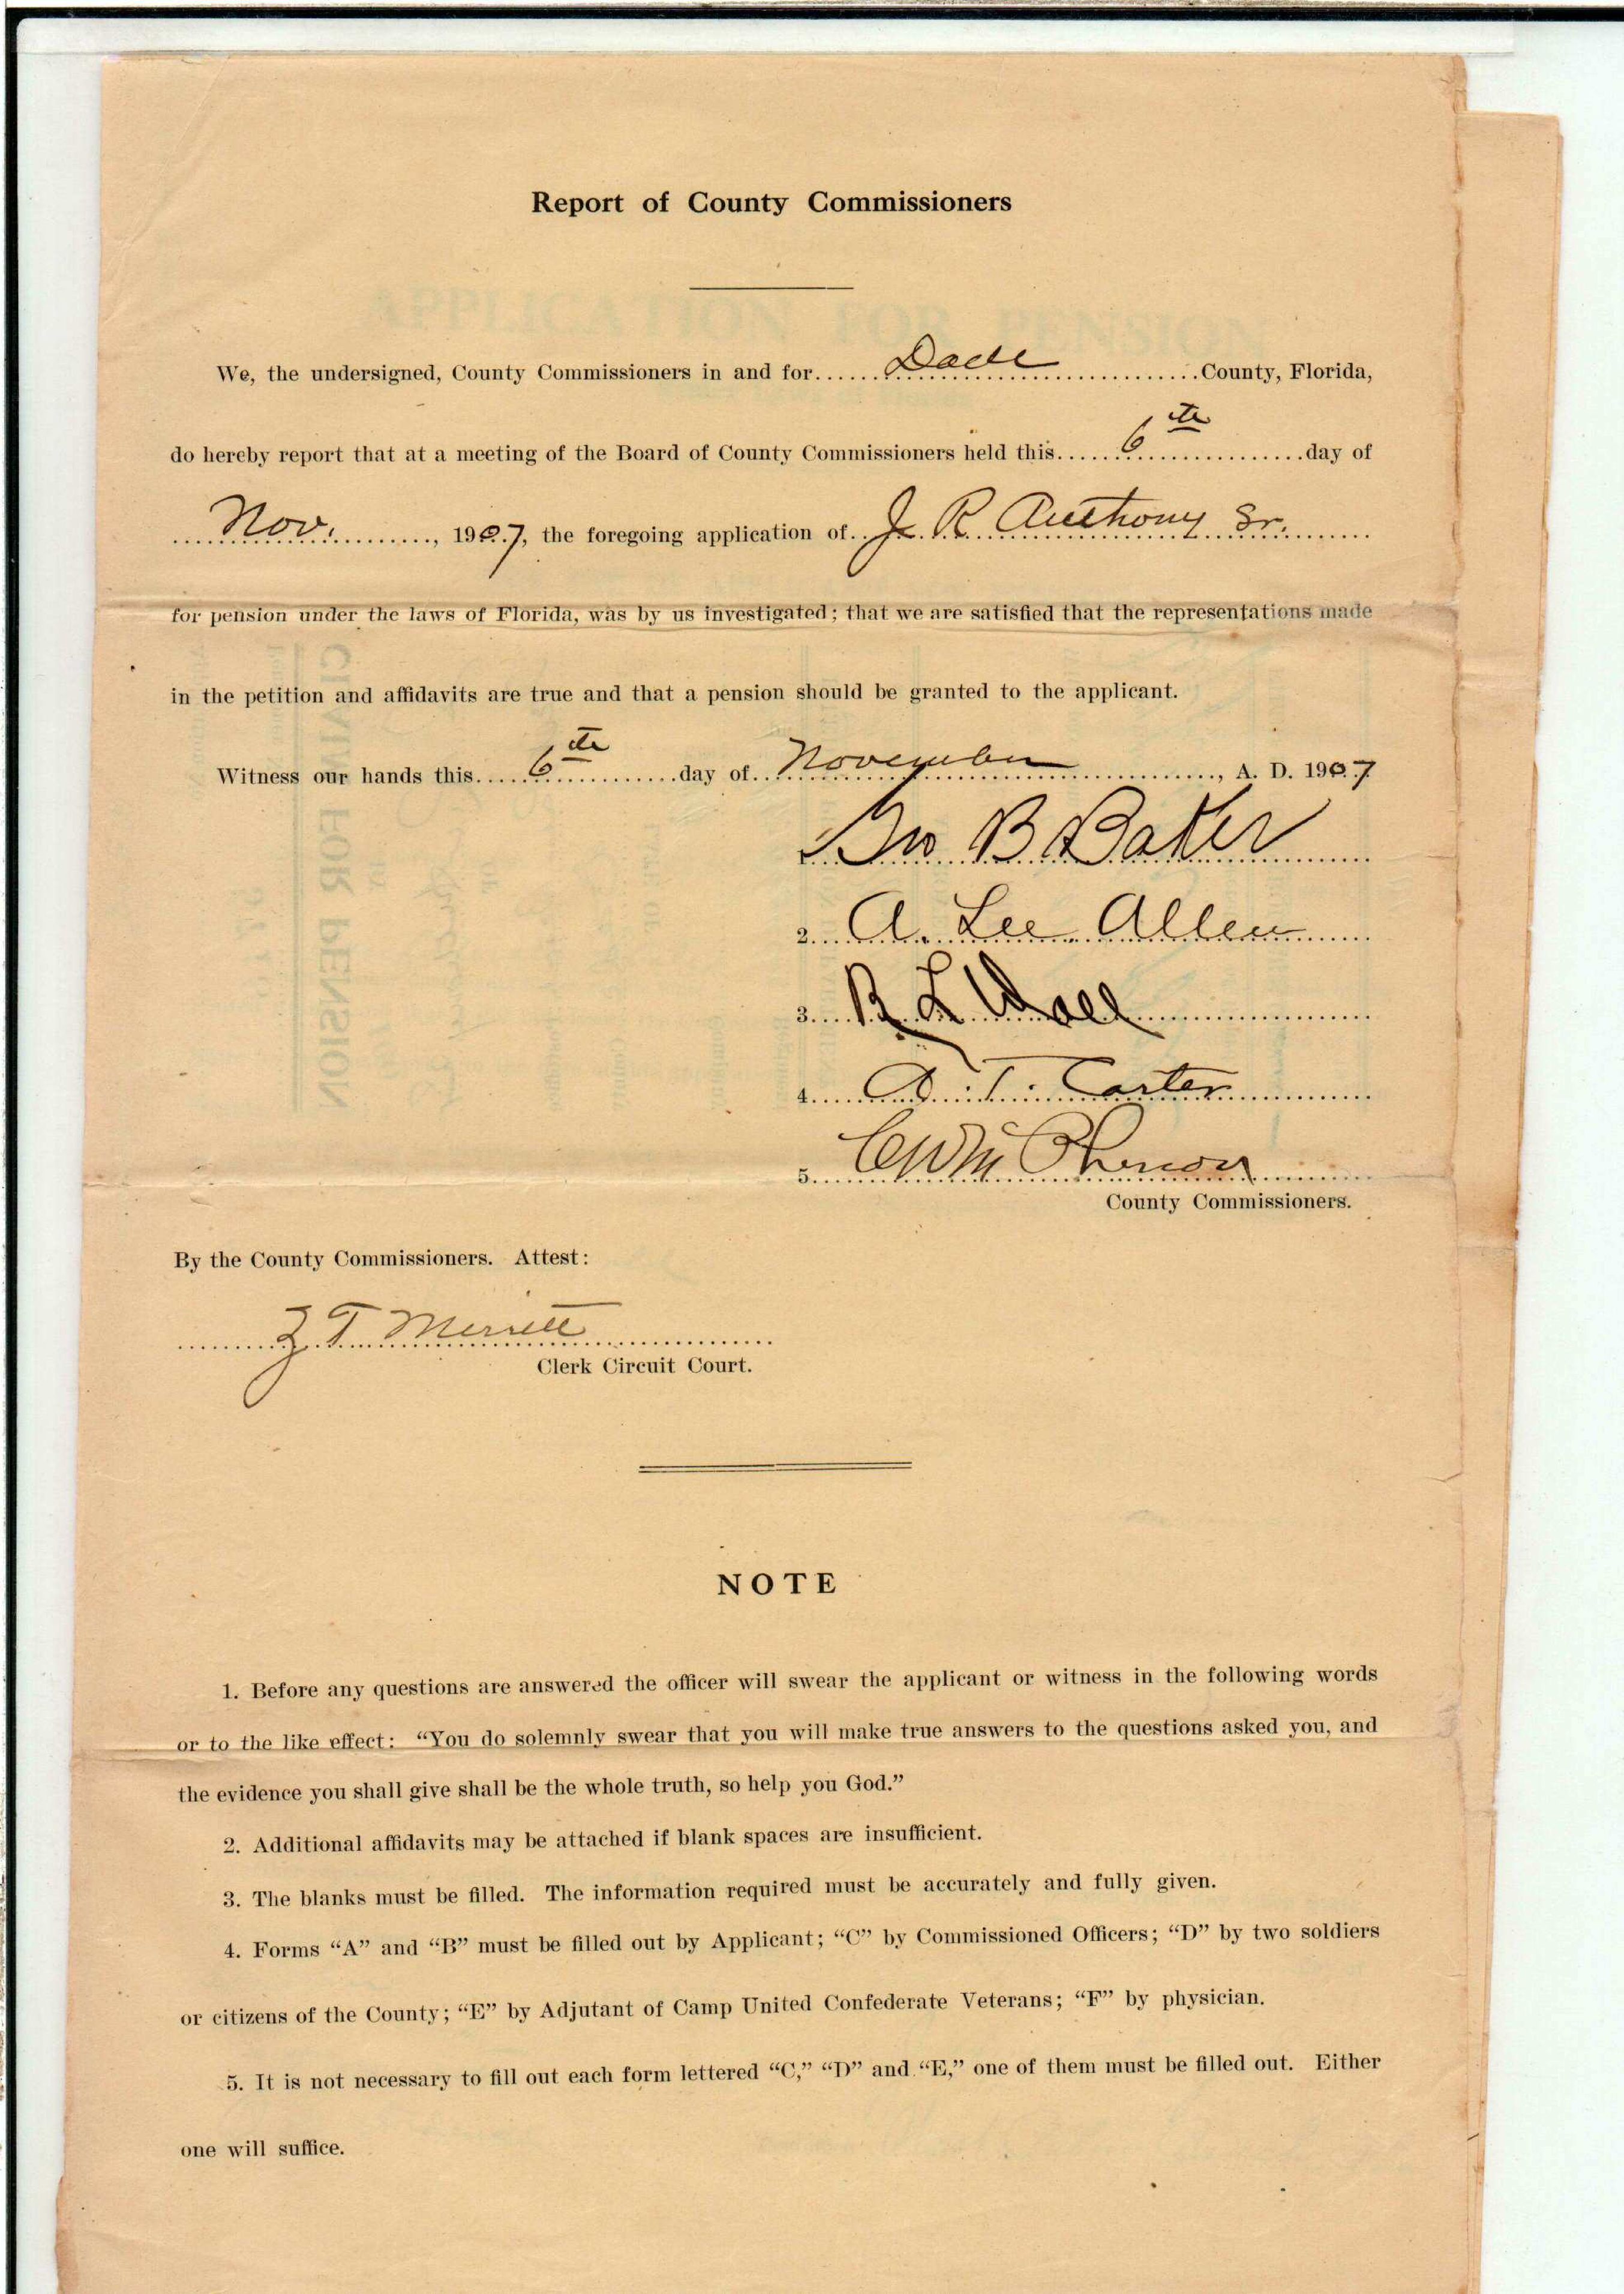 Report of County Commissioners
We, the undersigned, County Commissioners in and for......Dade......County, Florida,
do hereby report that at a meeting of the Board of County Commissioners held this......6th......day of
......Nov......, 1907, the foregoing application of...J. R. Anthony Sr.......
for pension under the laws of Florida, was by us investigated; that we are satisfied that the representations made
in the petition and affidavits are true and that a pension should be granted to the applicant.
Witness our hands this......6th......day of...November......, A. D. 1907
Geo B Baker
2....A. Lee Allen......
3....R L Wall......
4....A. T. Carter......
5.
County Commissioners.
By the County Commissioners. Attest:
......Z. T. Merritt......
Clerk Circuit Court.
NOTE
1. Before any questions are answered the officer will swear the applicant or witness in the following words
or to the like effect: “You do solemnly swear that you will make true answers to the questions asked you, and
the evidence you shall give shall be the whole truth, so help you God.”
2. Additional affidavits may be attached if blank spaces are insufficient.
3. The blanks must be filled. The information required must be accurately and fully given.
4. Forms “A” and “B” must be filled out by Applicant; “C” by Commissioned Officers; “D” by two soldiers
or citizens of the County; “E” by Adjutant of Camp United Confederate Veterans; “F” by physician.
5. It is not necessary to fill out each form lettered “C,” “D” and “E,” one of them must be filled out. Either
one will suffice.